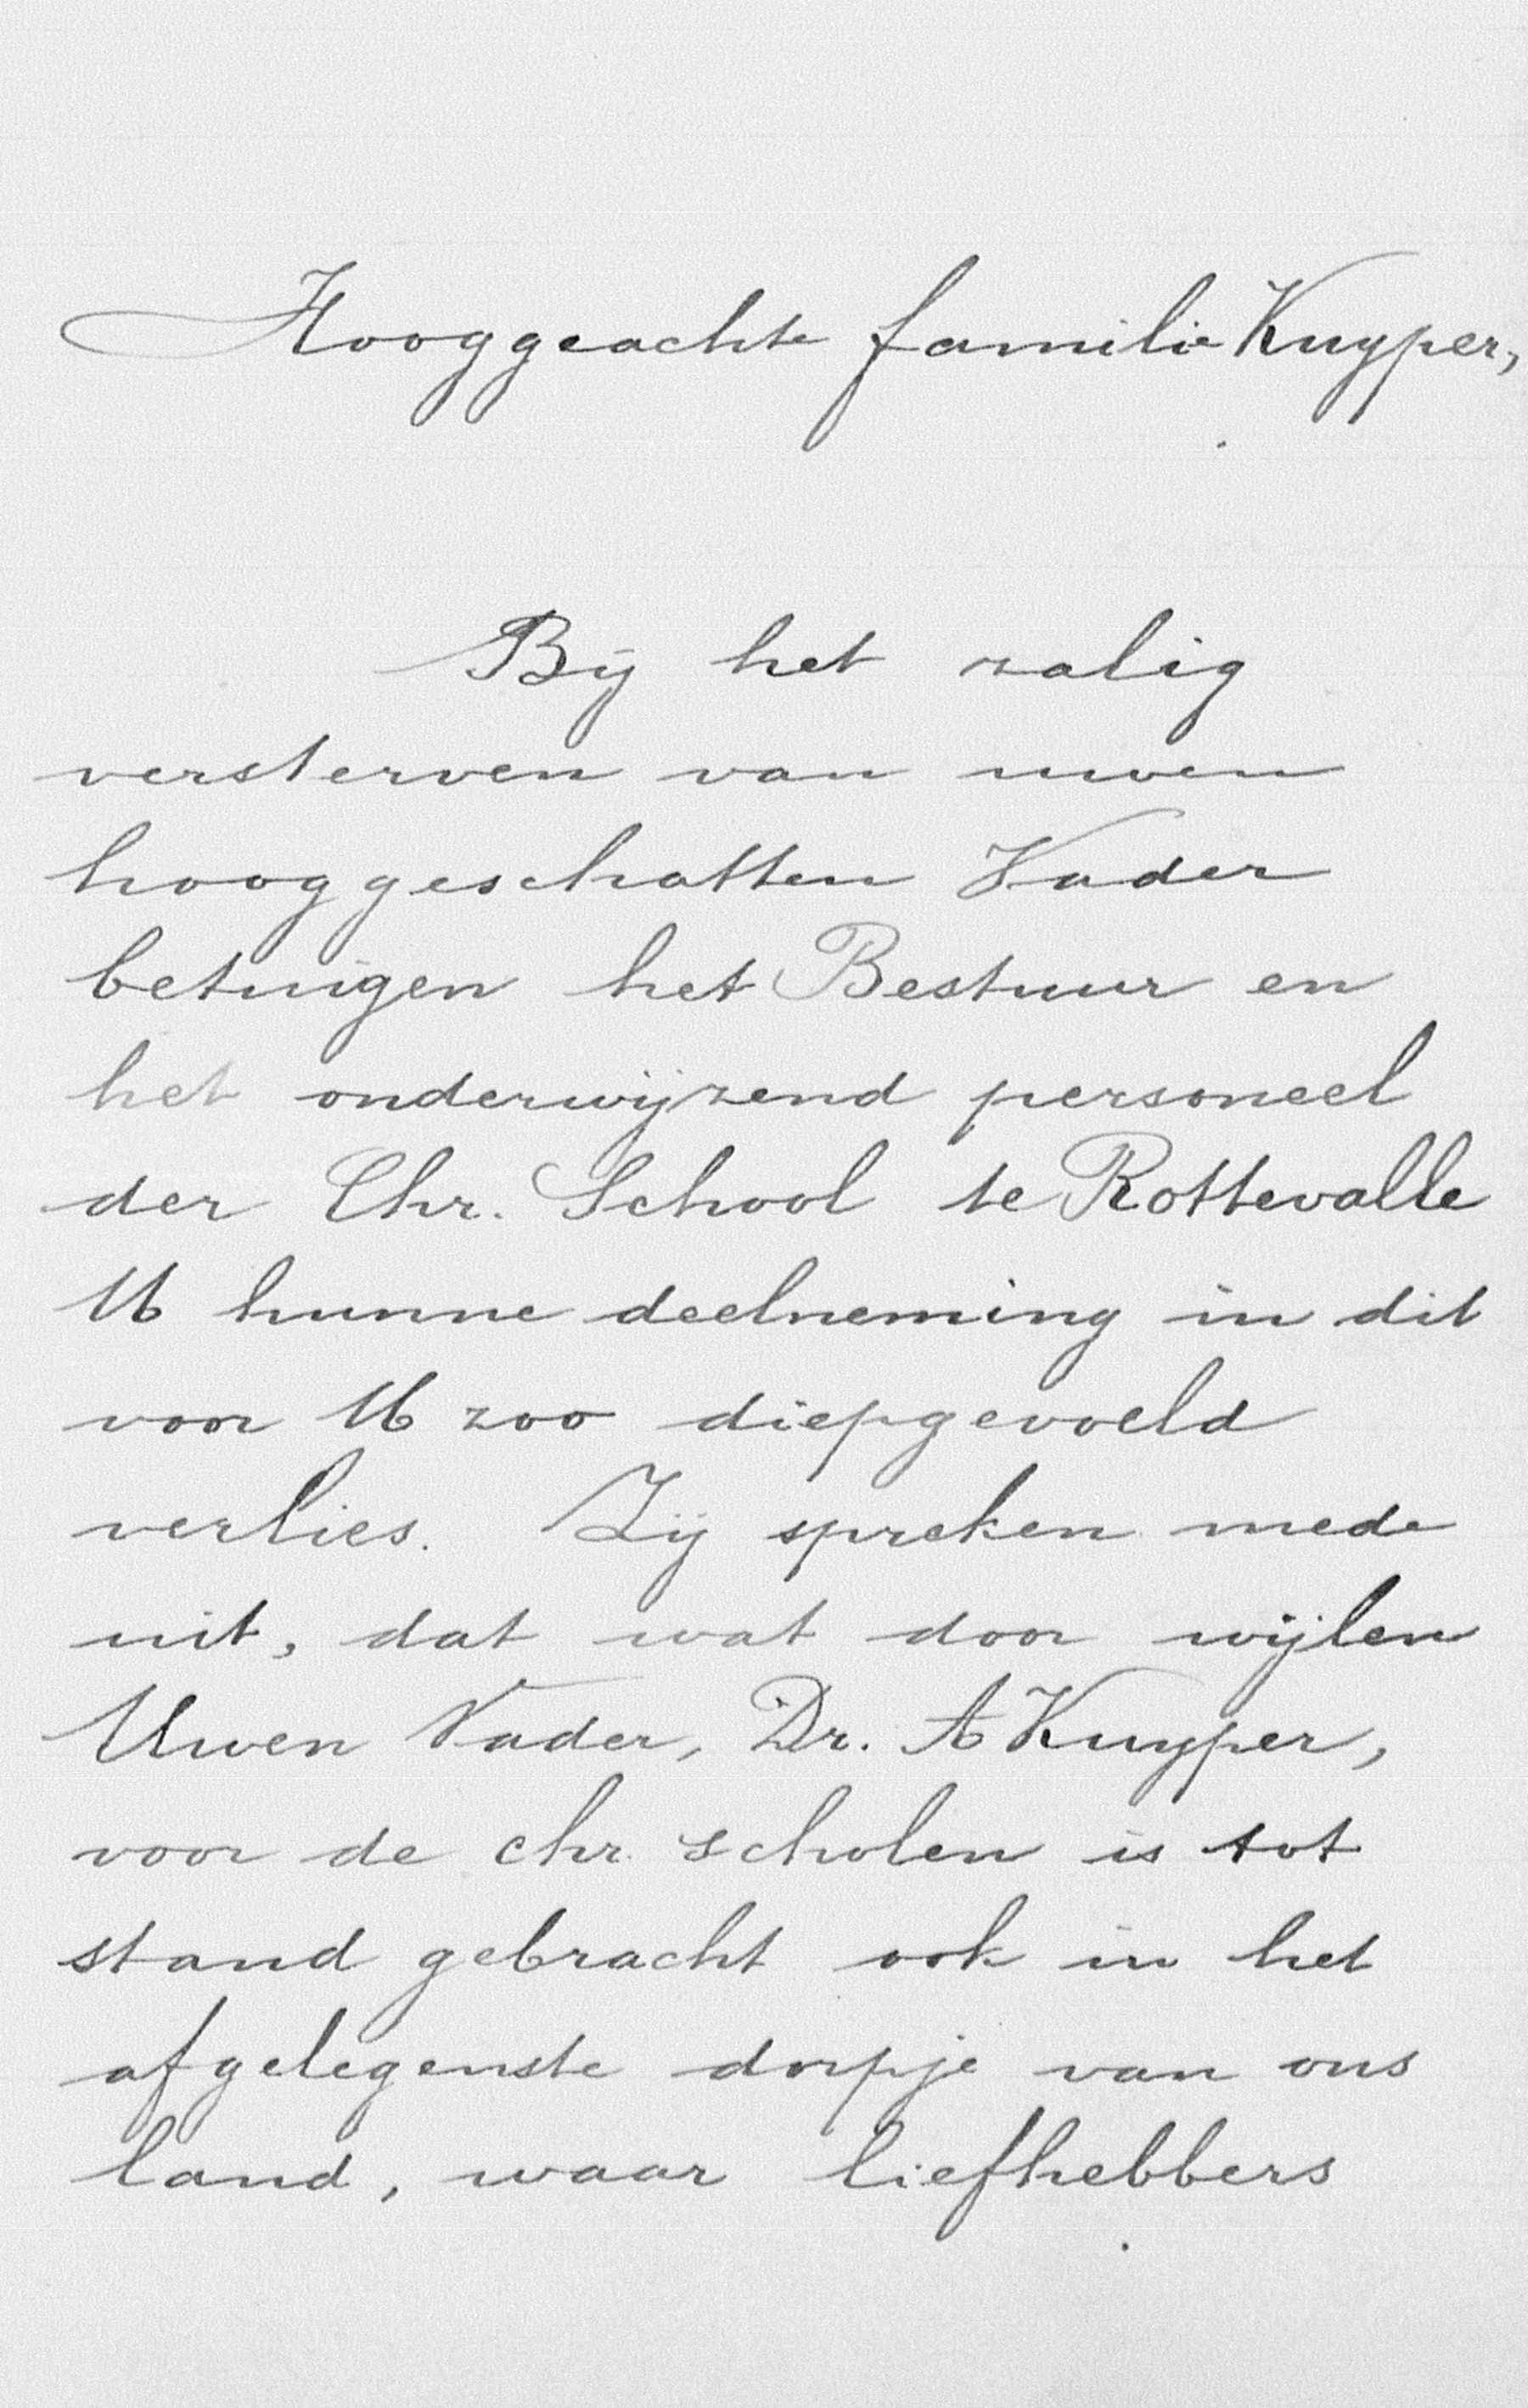 Hooggeachte familie Kuyper,
Bij het zalig
versterven van uwen
hooggeschatten Vader
betuigen het Bestuur en
het onderwijzend personeel
der Chr. School te Rottevalle
U hunne deelneming in dit
voor U zoo diepgevoeld
verlies. Zij spreken mede
uit, dat wat door wijlen
Uwen Vader, Dr. A Kuyper,
voor de chr. scholen is tot
stand gebracht ook in het
afgelegenste dorpje van ons
land, waar liefhebbers